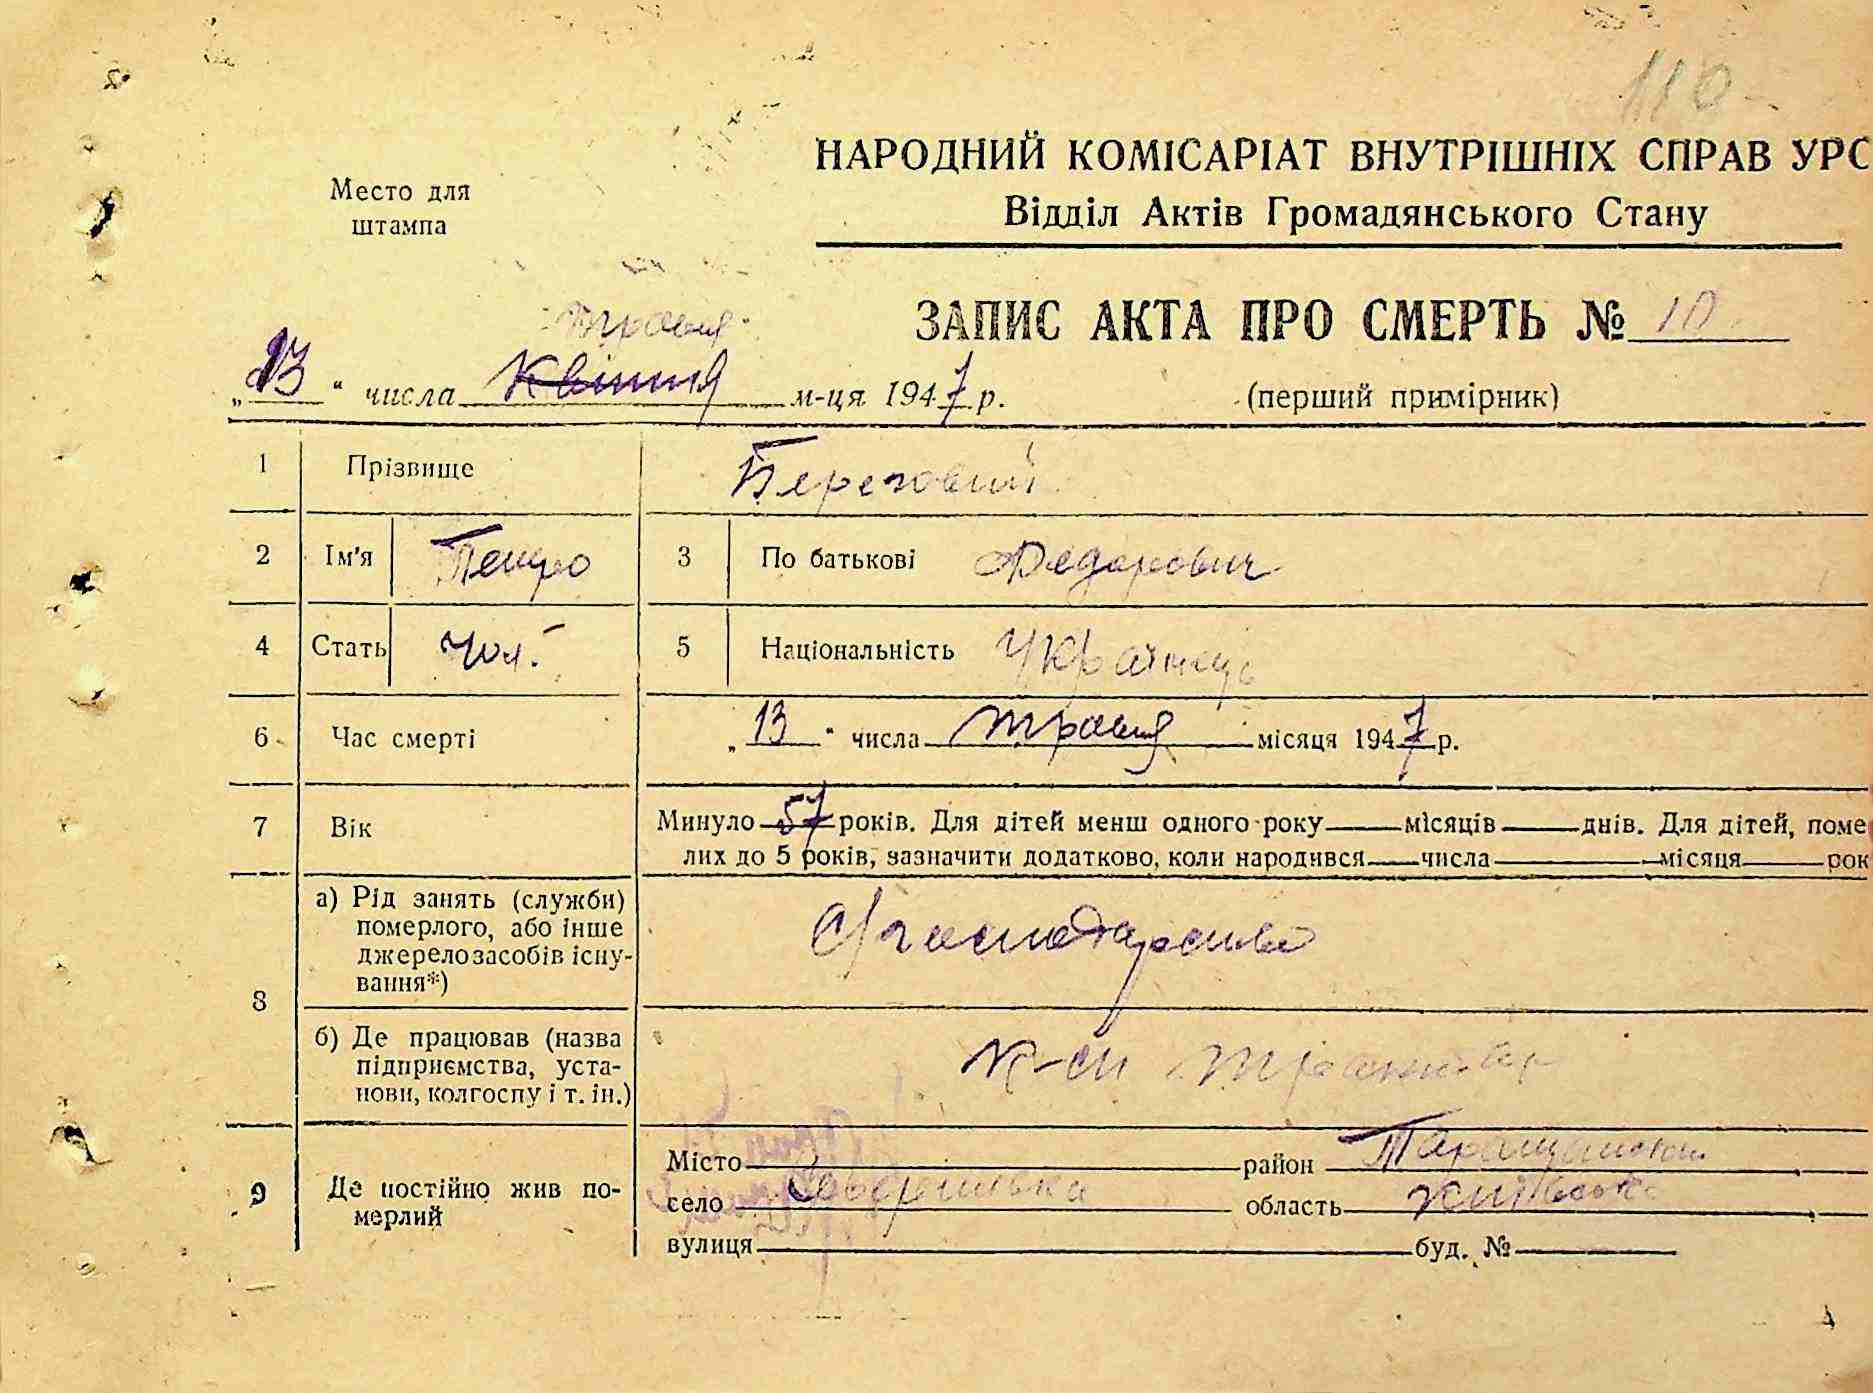 110
НАРОДНИЙ КОМІСАРІАТ ВНУТРІШНІХ СПРАВ УРС
Место для
штампа
Відділ Актів Громадянського Стану
ЗАПИС АКТА ПРО СМЕРТЬ № 10
травня
„13“ числа Квітня м-ця 1947 р.
(перший примірник)
1 Прізвище Береговий
2 Ім'я Петро 3 По батькові Федорович
4 Стать чол. 5 Національність Українець
6 Час смерті „13“ числа травня місяця 1947 р.
7 Вік Минуло 57 років. Для дітей менш одного року місяців днів. Для дітей, поме
лих до 5 років, зазначити додатково, коли народився числа місяця рок
8 а) Рід занять (служби)
померлого, або інше
джерело засобів існу-
вання*)
С/господарство
б) Де працював (назва
підприємства, уста-
нови, колгоспу і т. ін.)
к-сп трактор
9 Де постійно жив по-
мерлий
Місто район Таращанськ
село область Київська
вулиця буд. №